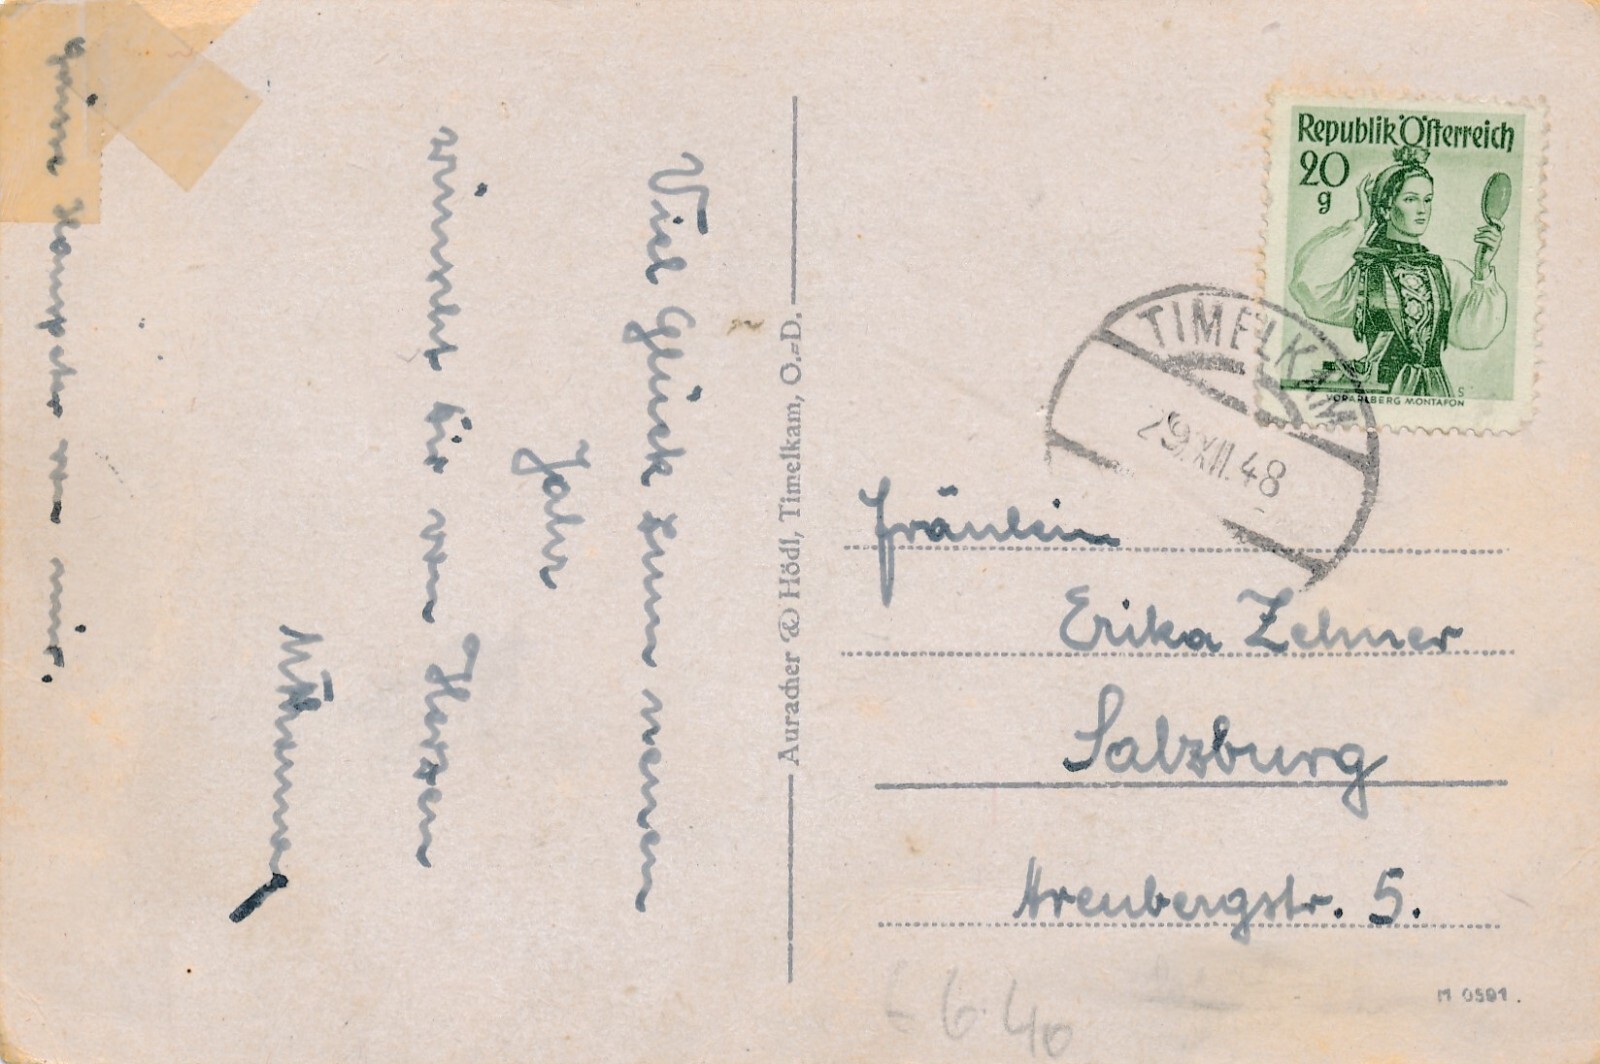 Viel Glück zum neuen
Jahr
wünscht dir von Herzen
von mir.
Auracher & Hödl, Timelkam, O.-D.
Republik Österreich
20
g
VORARLBERG MONTAFON
TIMELKAM
29.XII.48
Fräulein
Erika Zehner
Salzburg
Arenbergstr. 5.
6.40
M 0591.